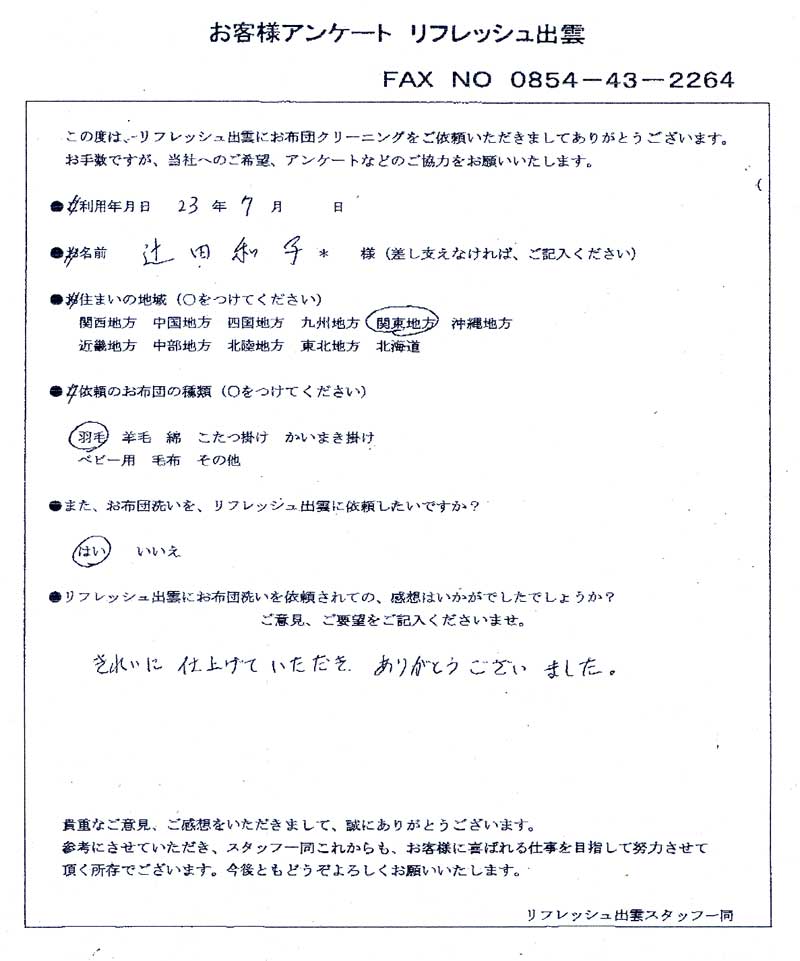 お客様アンケート リフレッシュ出雲
FAX NO 0854-43-2264
この度は、リフレッシュ出雲にお布団クリーニングをご依頼いただきましてありがとうございます。
お手数ですが、当社へのご希望、アンケートなどのご協力をお願いいたします。
●ご利用年月日 23 年 7 月 日
●お名前 辻田和子* 様（差し支えなければ、ご記入ください）
●お住まいの地域（○をつけてください）
関西地方 中国地方 四国地方 九州地方 関東地方 沖縄地方
近畿地方 中部地方 北陸地方 東北地方 北海道
●ご依頼のお布団の種類（○をつけてください）
羽毛 羊毛 綿 こたつ掛け かいまき掛け
ベビー用 毛布 その他
●また、お布団洗いを、リフレッシュ出雲に依頼したいですか？
はい いいえ
●リフレッシュ出雲にお布団洗いを依頼されての、感想はいかがでしたでしょうか？
ご意見、ご要望をご記入くださいませ。
きれいに 仕上げて いただき ありがとうござい ました。
貴重なご意見、ご感想をいただきまして、誠にありがとうございます。
参考にさせていただき、スタッフ一同これからも、お客様に喜ばれる仕事を目指して努力させて
頂く所存でございます。今後ともどうぞよろしくお願いいたします。
リフレッシュ出雲スタッフ一同